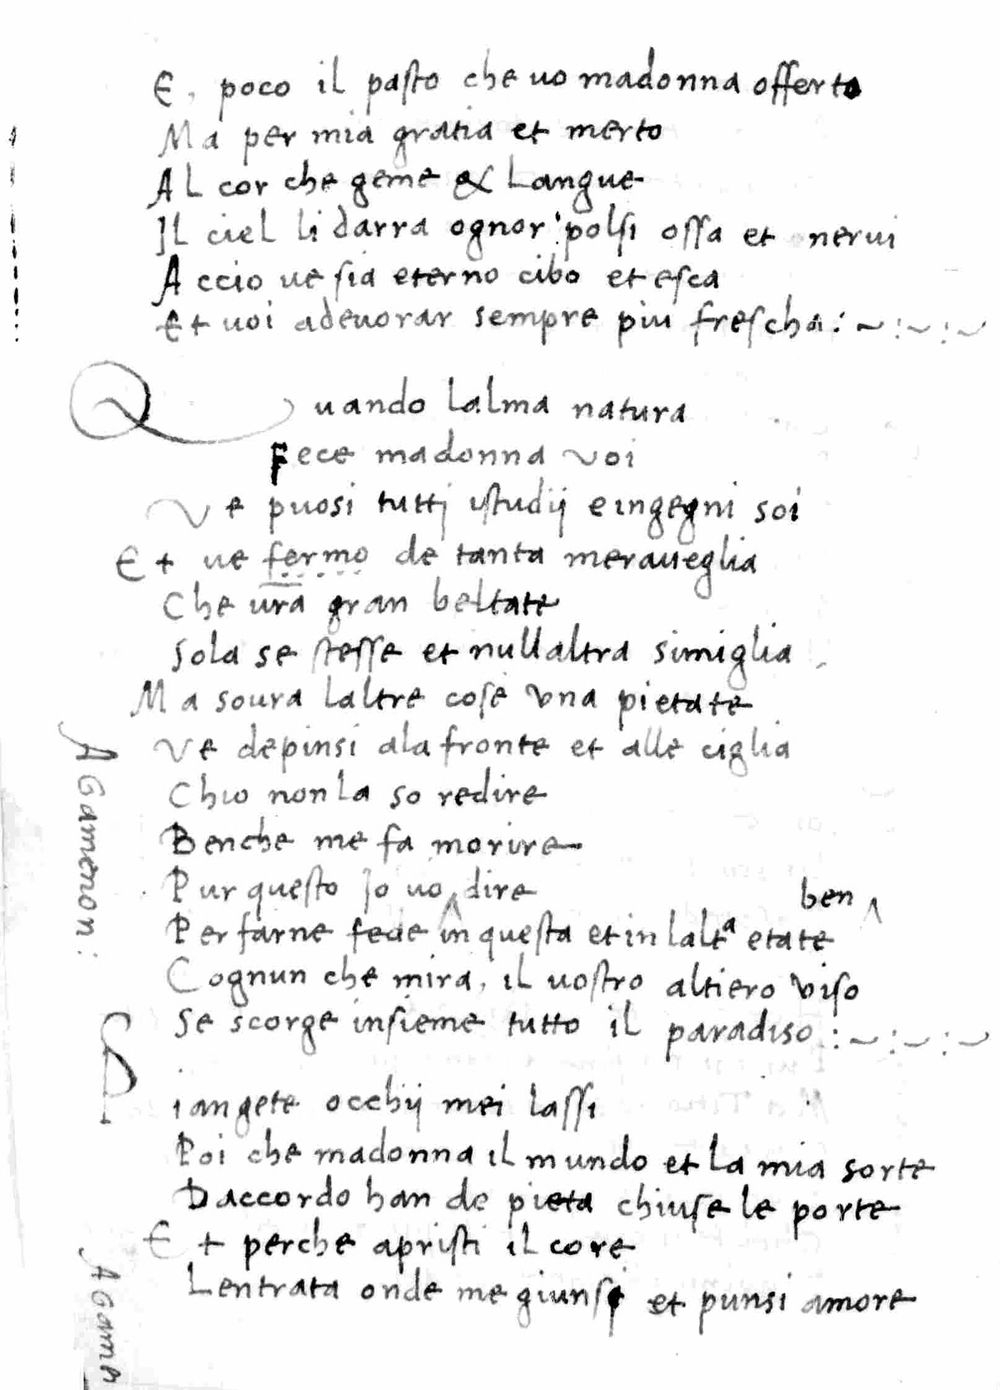 E, poco il pasto che uo madonna offerto
Ma per mia gratia et merto
Al cor che geme & Langue
Il ciel li darra ognor polsi ossa et nerui
Accio ue sia eterno cibo et esca
Et uoi adeuorar sempre piu frescha :~:~:~
Quando Lalma natura
Fece madonna voi
Ve puosi tuttj ustudij e ingegni soi
Et ue fermo de tanta meraueglia
Che ura gran beltate
Sola se stesse et nullaltra simiglia
Ma soura laltre cose vna pietate
Ve depinsi ala fronte et alle ciglia
Chio non la so redire
Benche me fa morire
Pur questo Jo uo ^ dire ben ^
Per farne fede in questa et in laltª etate
Cognun che mira, il uostro altiero viso
Se scorge insieme tutto il paradiso :~:~:~
Piangete occhij mei lassi
Poi che madonna il mundo et la mia sorte
Daccordo han de pieta chiuse le porte
Et perche apristi il core
Lentrata onde me giunse et punsi amore
AGamenon:
AGam